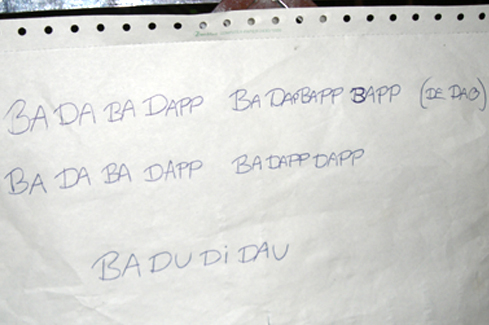 BA DA BA DAPP BA DAPBAPP BAPP (DE DAB)
BA DA BA DAPP BA DAPP DAPP
BA DU Di DAU